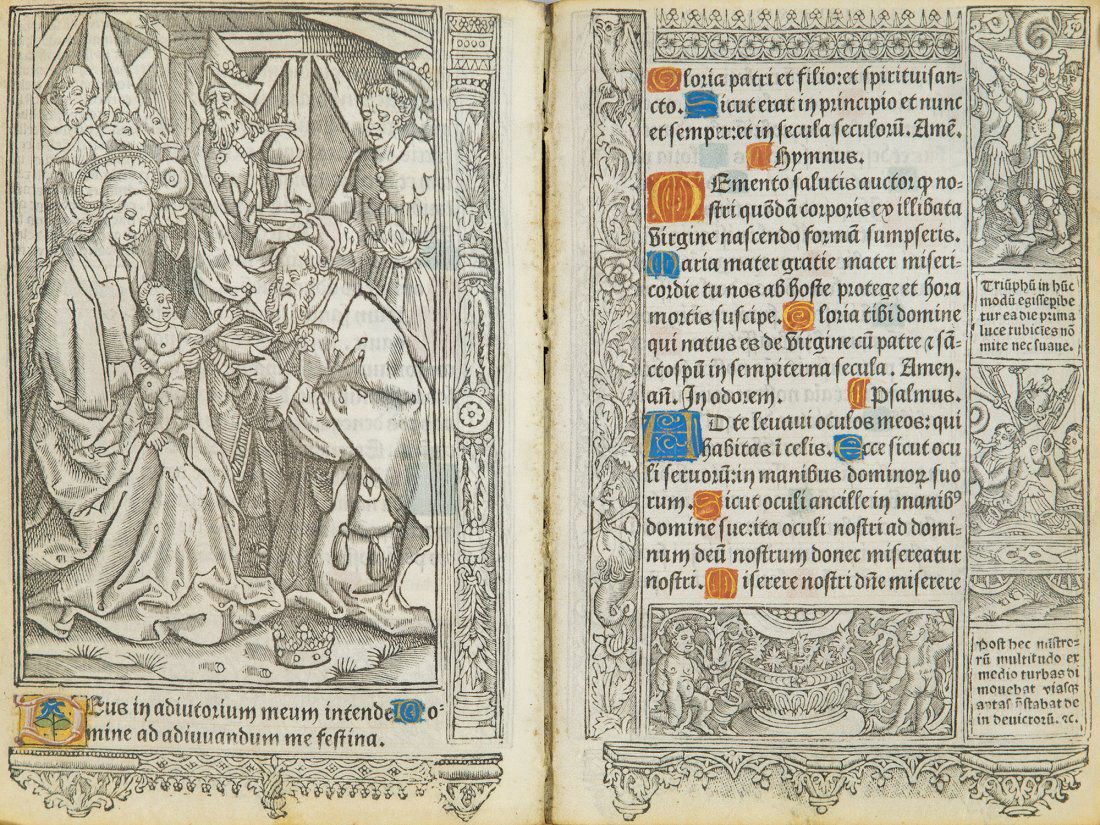 Deus in adiutorium meum intende Do-
mine ad adiuuandum me festina.
Gloria patri et filio: et spiritui san-
cto. Sicut erat in principio et nunc
et semper: et in secula seculorū. Amē.
Hymnus.
Memento salutis auctor ꝙ no-
stri quōdā corporis ex illibata
Virgine nascendo formā sumpseris.
Maria mater gratie mater miseri-
cordie tu nos ab hoste protege et hora
mortis suscipe. Gloria tibi domine
qui natus es de Virgine cū patre ⁊ sā-
cto spū in sempiterna secula. Amen.
añ. In odorem. Psalmus.
AD te leuaui oculos meos: qui
habitas ī celis. Ecce sicut ocu
li seruorū: in manibus dominoꝝ suo
rum. Sicut oculi ancille in manibꝰ
domine sue: ita oculi nostri ad domi-
num deū nostrum donec misereatur
nostri. Miserere nostri dn̄e miserere
Triūphū in hūc
modū egisse phibe
tur ea die prima
luce tubicīes nō
mite nec suaue.
Post hec mōstro-
rū multitudo ex
medio turbas di
mouebat
in deuictorū. ⁊c.